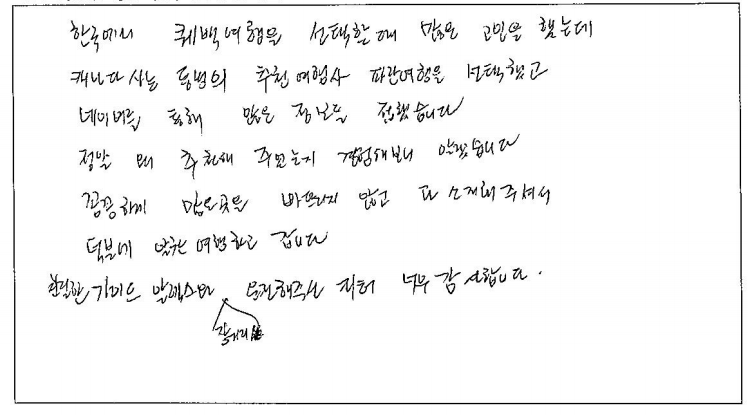 한국에서 퀘백여행을 선택할때 많은 고민을 했는데
캐나다 사는 동생의 추천 여행사 파란여행을 선택했고
네이버를 통해 많은 정보를 접했습니다
정말 왜 추천해 주었는지 경험해보니 알겠습니다
꼼꼼하게 많은곳을 빠뜨리지 않고 다 소개해주셔서
덕분에 알찬 여행하고 갑니다
친절한 가이드 알렉스와 운전해주신 피터 너무 감사합니다.